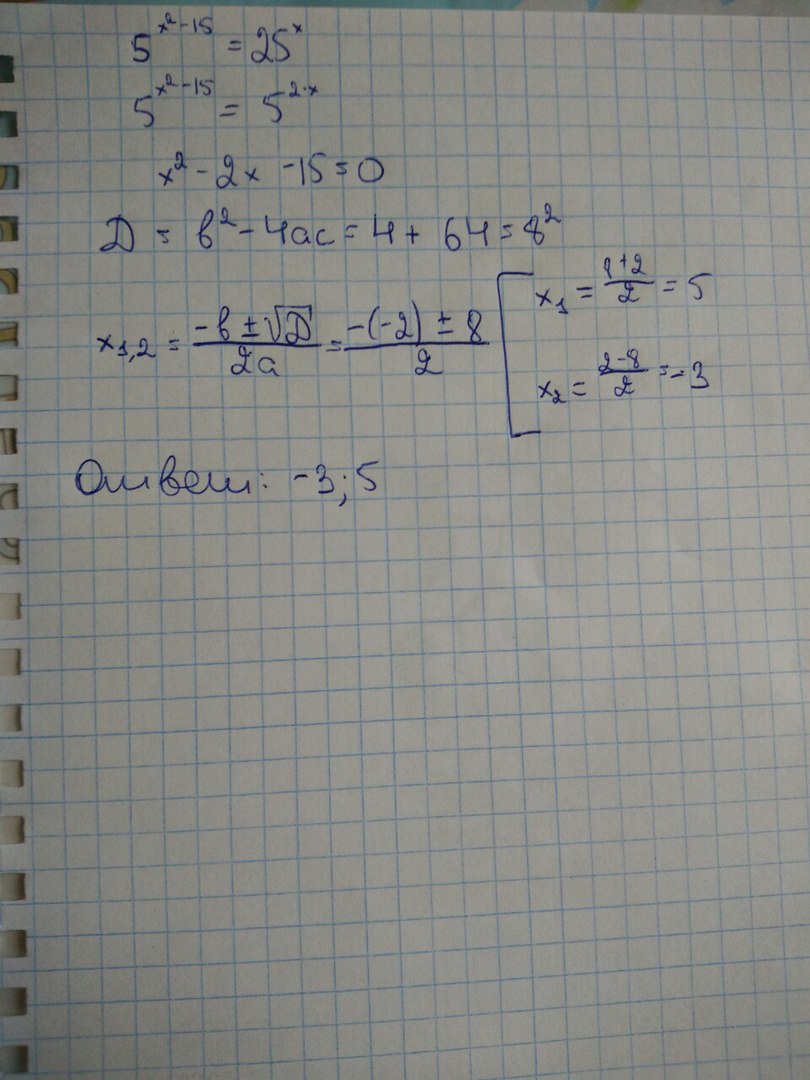 5^{x^2-15} = 25^x
5^{x^2-15} = 5^{2·x}
x^2 - 2x - 15 = 0
D = b^2 - 4ac = 4 + 64 = 8^2
x_{1,2} = \frac{-b ± \sqrt{D}}{2a} = \frac{-(-2) ± 8}{2} [ x_1 = \frac{8+2}{2} = 5
x_2 = \frac{2-8}{2} = -3
Ответ: -3; 5